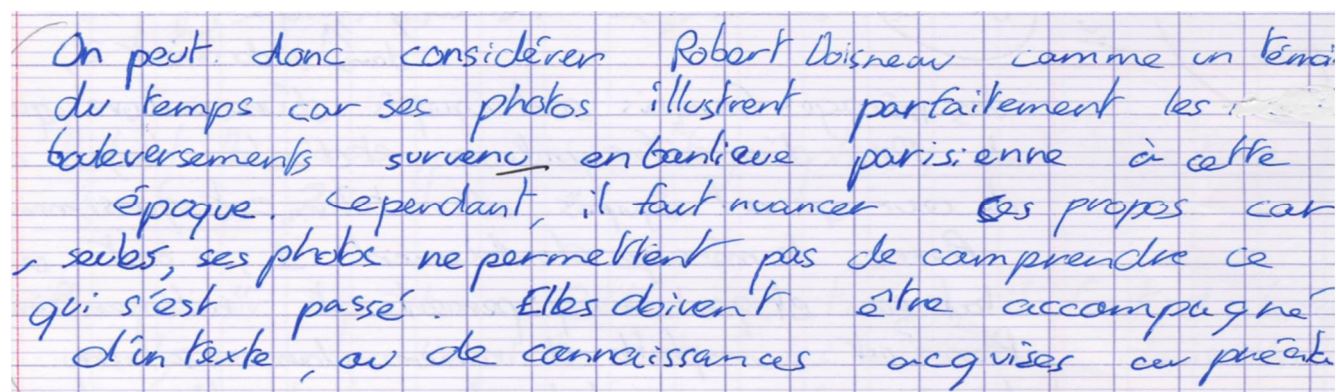 On peut donc considérer Robert Doisneau comme un témoi
du temps car ses photos illustrent parfaitement les
bouleversements survenu en banlieue parisienne à cette
époque. Cependant, il faut nuancer ces propos car
seules, ses photos ne permettent pas de comprendre ce
qui s'est passé. Elles doivent être accompagné
d'un texte, ou de connaissances acquises au